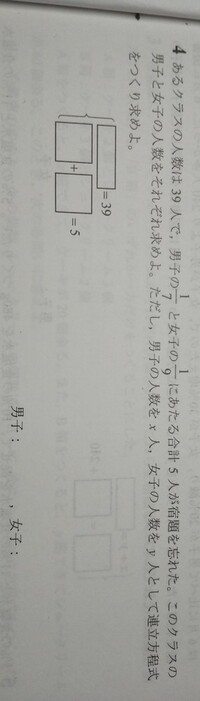 4 あるクラスの人数は 39 人で，男子の 1/7 と女子の 1/9 にあたる合計 5 人が宿題を忘れた。このクラスの
男子と女子の人数をそれぞれ求めよ。ただし，男子の人数を x 人，女子の人数を y 人として連立方程式
をつくり求めよ。
= 39
+ = 5
男子： ，女子：